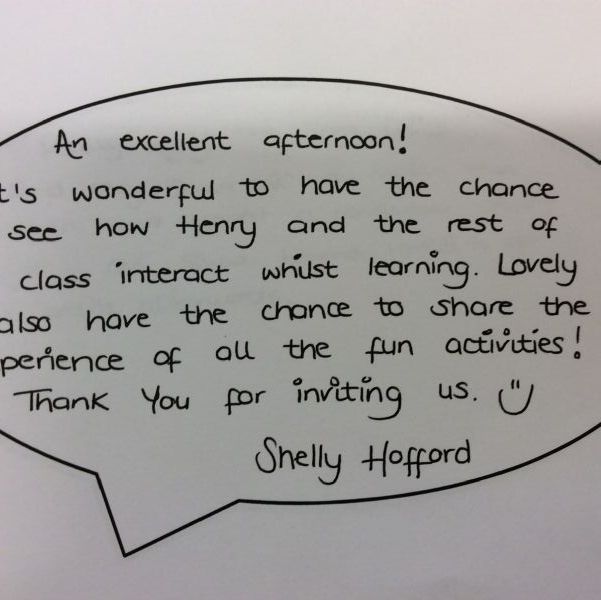 An excellent afternoon!
t's wonderful to have the chance
see how Henry and the rest of
class interact whilst learning. Lovely
also have the chance to share the
perience of all the fun activities!
Thank You for inviting us.
Shelly Hofford